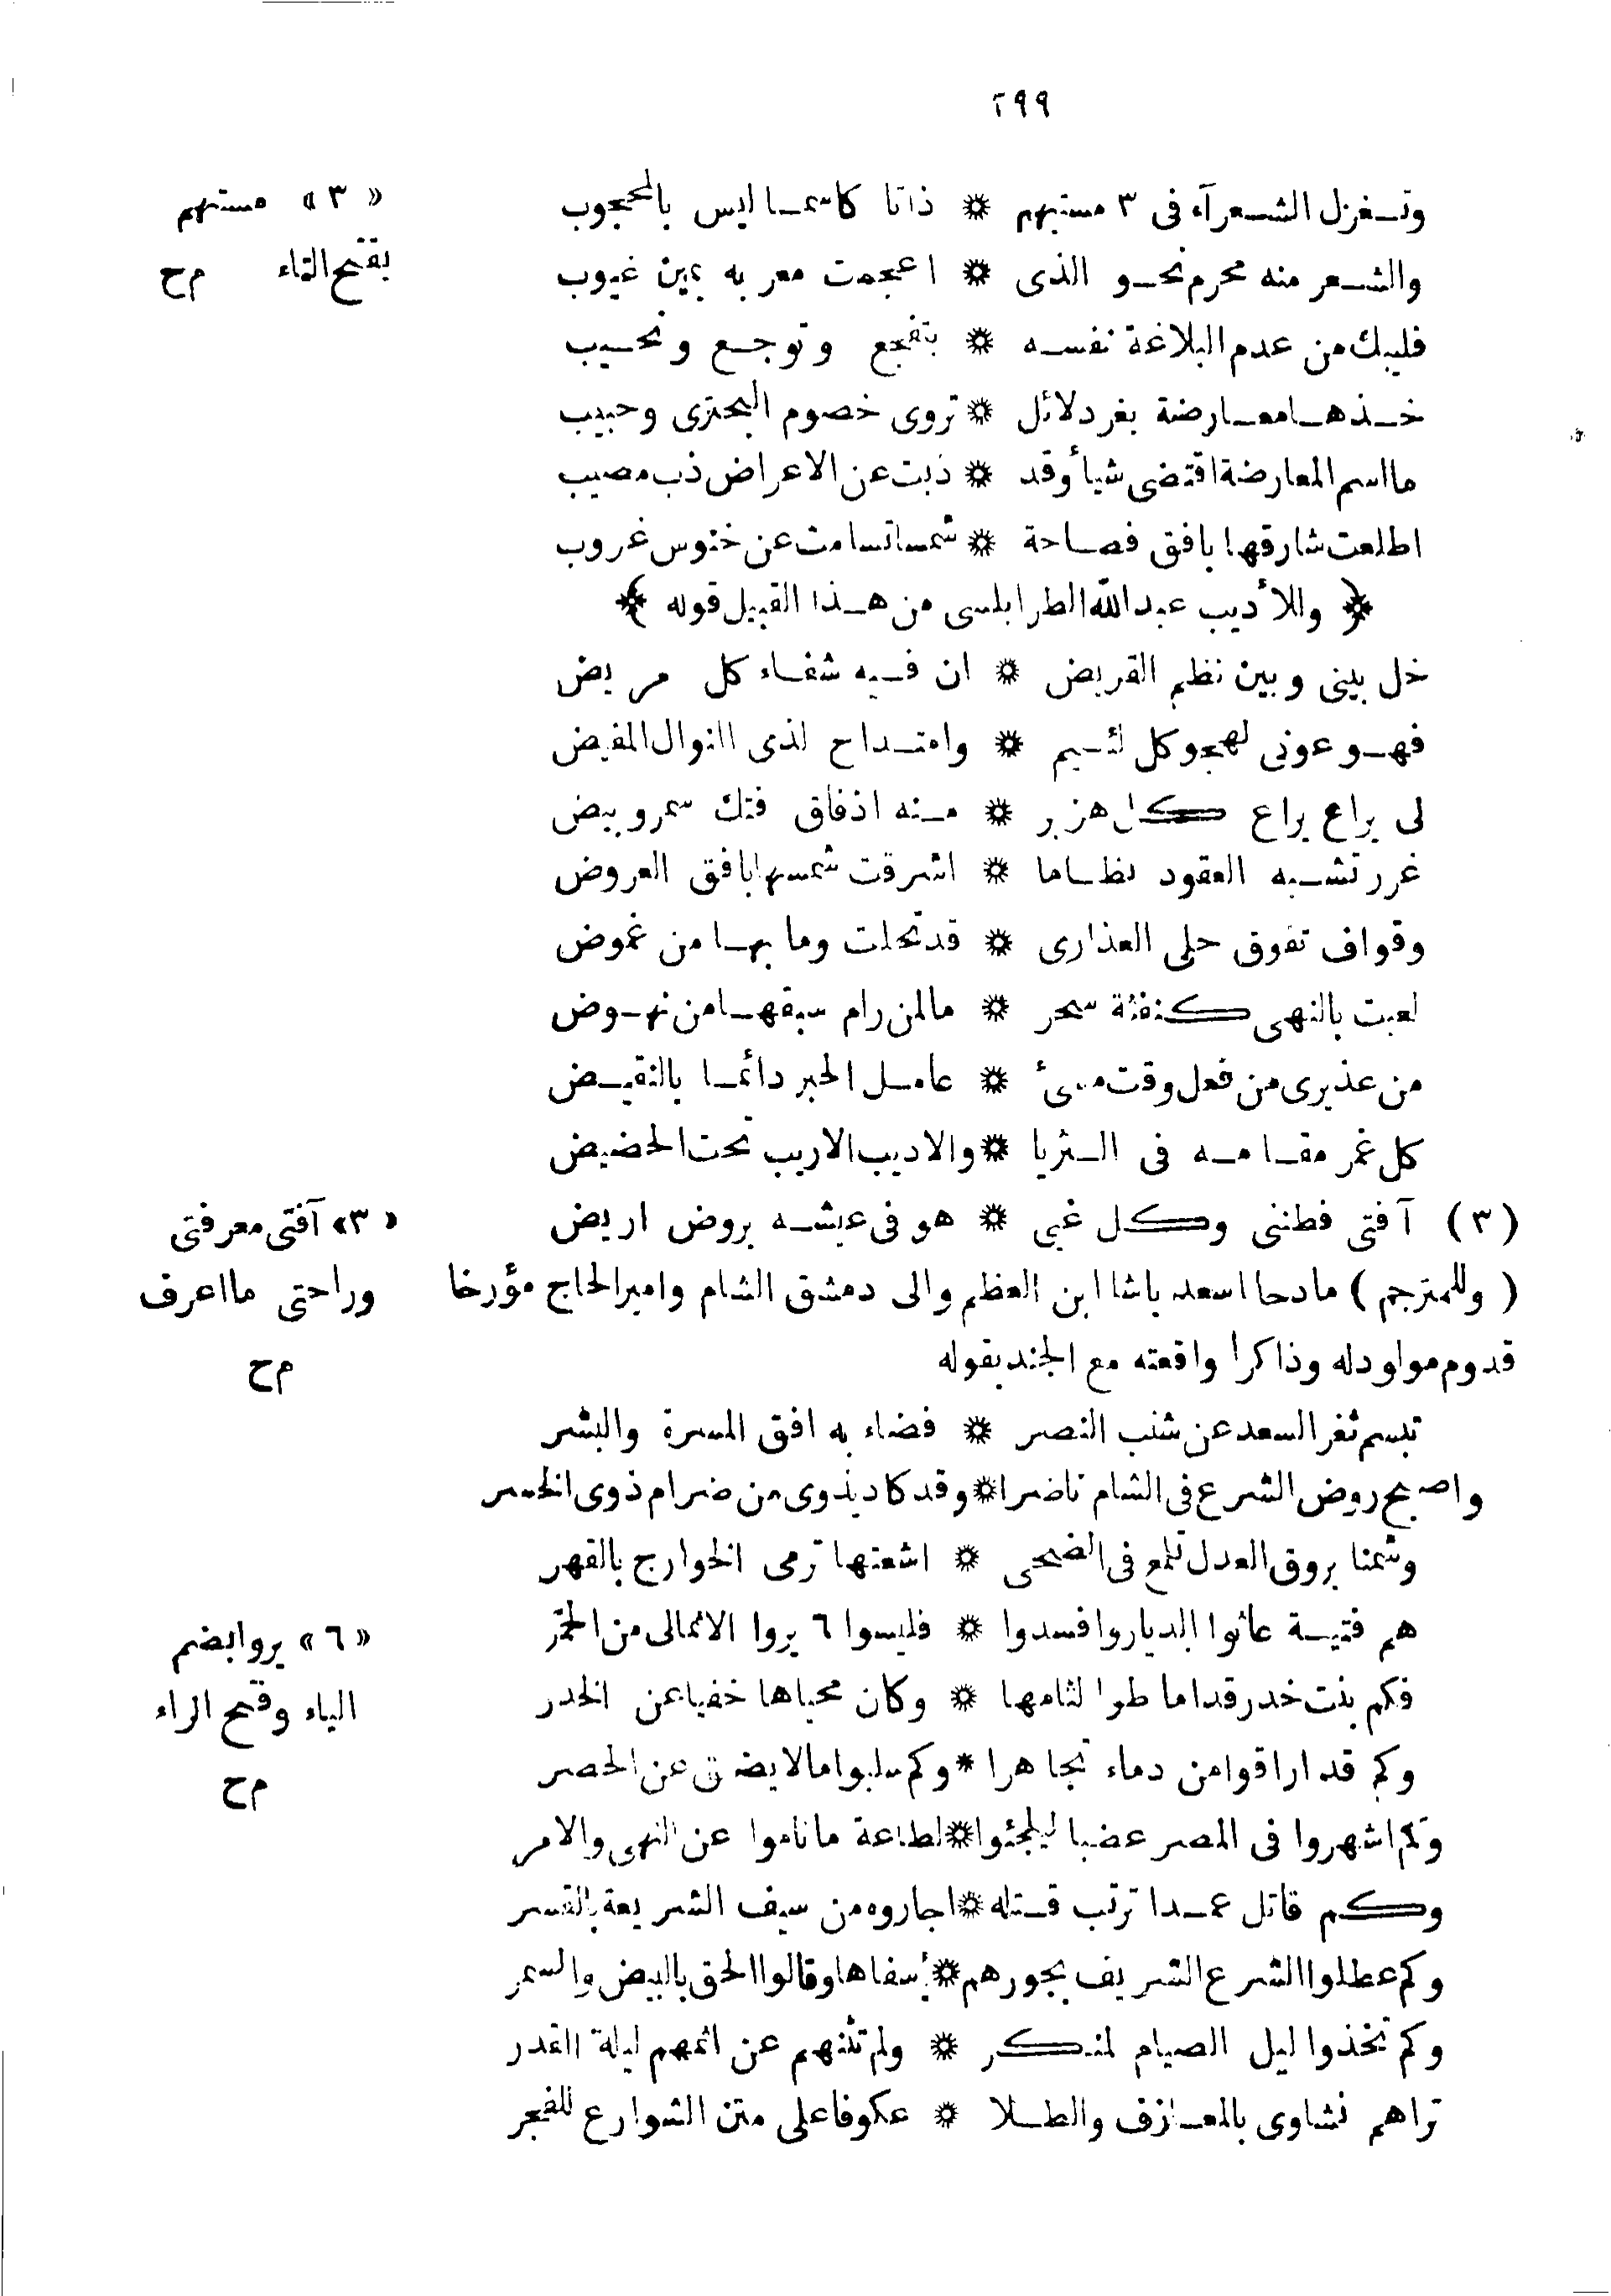 ٢٩٩
وتـغزل الشـعرآء فى ٣ مستهم * ذاتا كاسمـا ليس بالمحجوب
والشـعر منه محرم نحـو الذى * اعجمت معربه بمين غيوب
فليبك من عدم البلاغة نفسـه * بتفجع وتوجـع ونحـيب
خـذهـا معـارضة بغر دلائل * تروى خصوم البحترى وحبيب
ما اسم المعارضة اقتضى شيأ وقد * ذبت عن الاعراض ذب مصيب
اطلعت شارقها بافق فصـاحة * شمسا تسامت عن خنوس غروب
﴿ وللأديب عبد الله الطرابلسى من هـذا القبيل قوله ﴾
خل بينى وبين نظم القريض * ان فـيه شفـاء كل مريض
فهـو عونى لهجو كل لئـيم * وامتـداح لذى النوال المفيض
لى يراع يراع كل هزبر * مـنه اذ فاق فتك سمر وبيض
غرر تشـبه العقود نظـاما * اشرقت شمسها بافق العروض
وقواف تفوق حلى العذارى * قد تحلت وما بهـا من غموض
لعبت بالنهى كنفثة سحر * ما لمن رام سبقهـا من نهـوض
من عذيرى من فعل وقت مسئ * عامـل الحبر دائمـا بالنقيـض
كل غمر مقـامـه فى الـثريا * والاديب الاريب تحت الحضيض
(٣) آفتى فطنتى وكل غبى * هو فى عيشـه بروض اريض
(وللمترجم) مادحا اسعد باشا ابن العظم والى دمشق الشام وامير الحاج مؤرخا
قدوم مولود له وذاكرا واقعته مع الجند بقوله
تبسم ثغر السعد عن شنب النصر * فضاء به افق المسرة والبشر
واصبح روض الشرع فى الشام ناضرا * وقد كاد يذوى من ضرام ذوى الخسر
وشمنا بروق العدل تلمع فى الضحى * اشعتها ترمى الخوارج بالقهر
هم فتيـة عاثوا الديار وافسدوا * فليسوا ٦ يروا الا ثمالى من الخمر
فكم بنت خدر قد اماطوا لثامها * وكان محياها خفيا عن الخدر
وكم قد اراقوا من دماء تجاهرا * وكم سلبوا ما لا يضيق عن الحصر
وكم اشهروا فى المصر عضبا ليلجئوا * لطاعة ما ناموا عن النهى والامر
وكم قاتل عمـدا ترتب قـتله * اجاروه من سيف الشريعة بالقسر
وكم عطلوا الشرع الشريف بجورهم * أسفاها وقالوا الحق بالبيض والسمر
وكم تخذوا ليل الصيام لمنـكر * ولم تثنهم عن اثمهم ليلة القدر
تراهم نشاوى بالمعـازف والطـلا * عكوفا على متن الشوارع للفجر
«٣» مستهم
بفتح التاء م ح
«٣» آفتى معرفتى
وراحتى ما اعرف
م ح
«٦» يروا بضم
الياء وفتح الراء
م ح